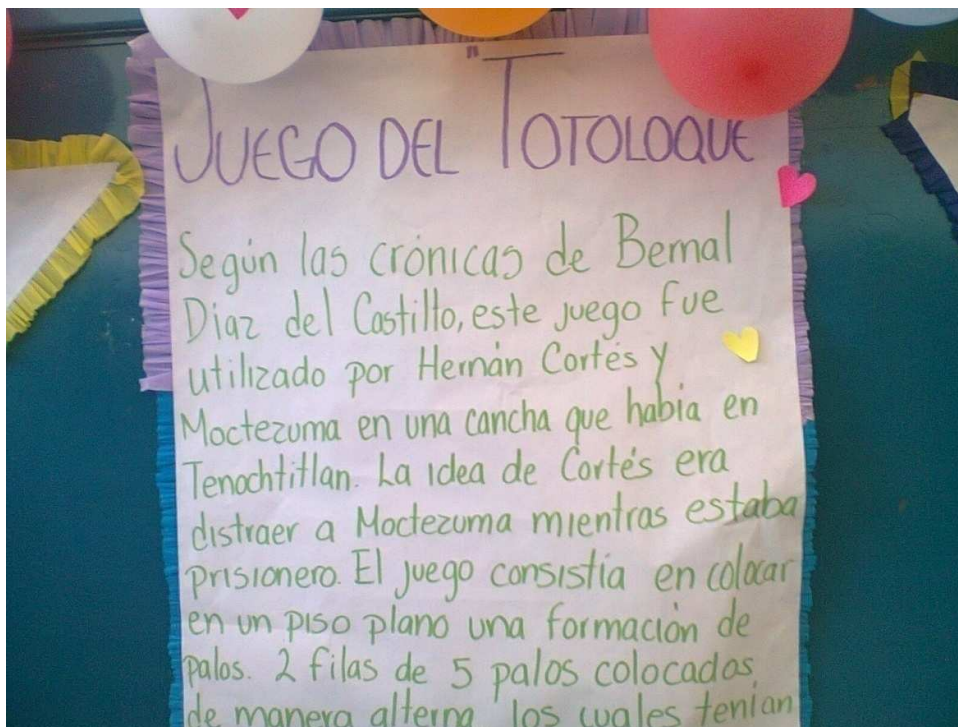 JUEGO DEL "TOTOLOQUE
Según las crónicas de Bernal
Diaz del Castillo, este juego fue
utilizado por Hernán Cortés y
Moctezuma en una cancha que había en
Tenochtitlan. La idea de Cortés era
distraer a Moctezuma mientras estaba
prisionero. El juego consistía en colocar
en un piso plano una formación de
palos. 2 filas de 5 palos colocados
de manera alterna los cuales tenían